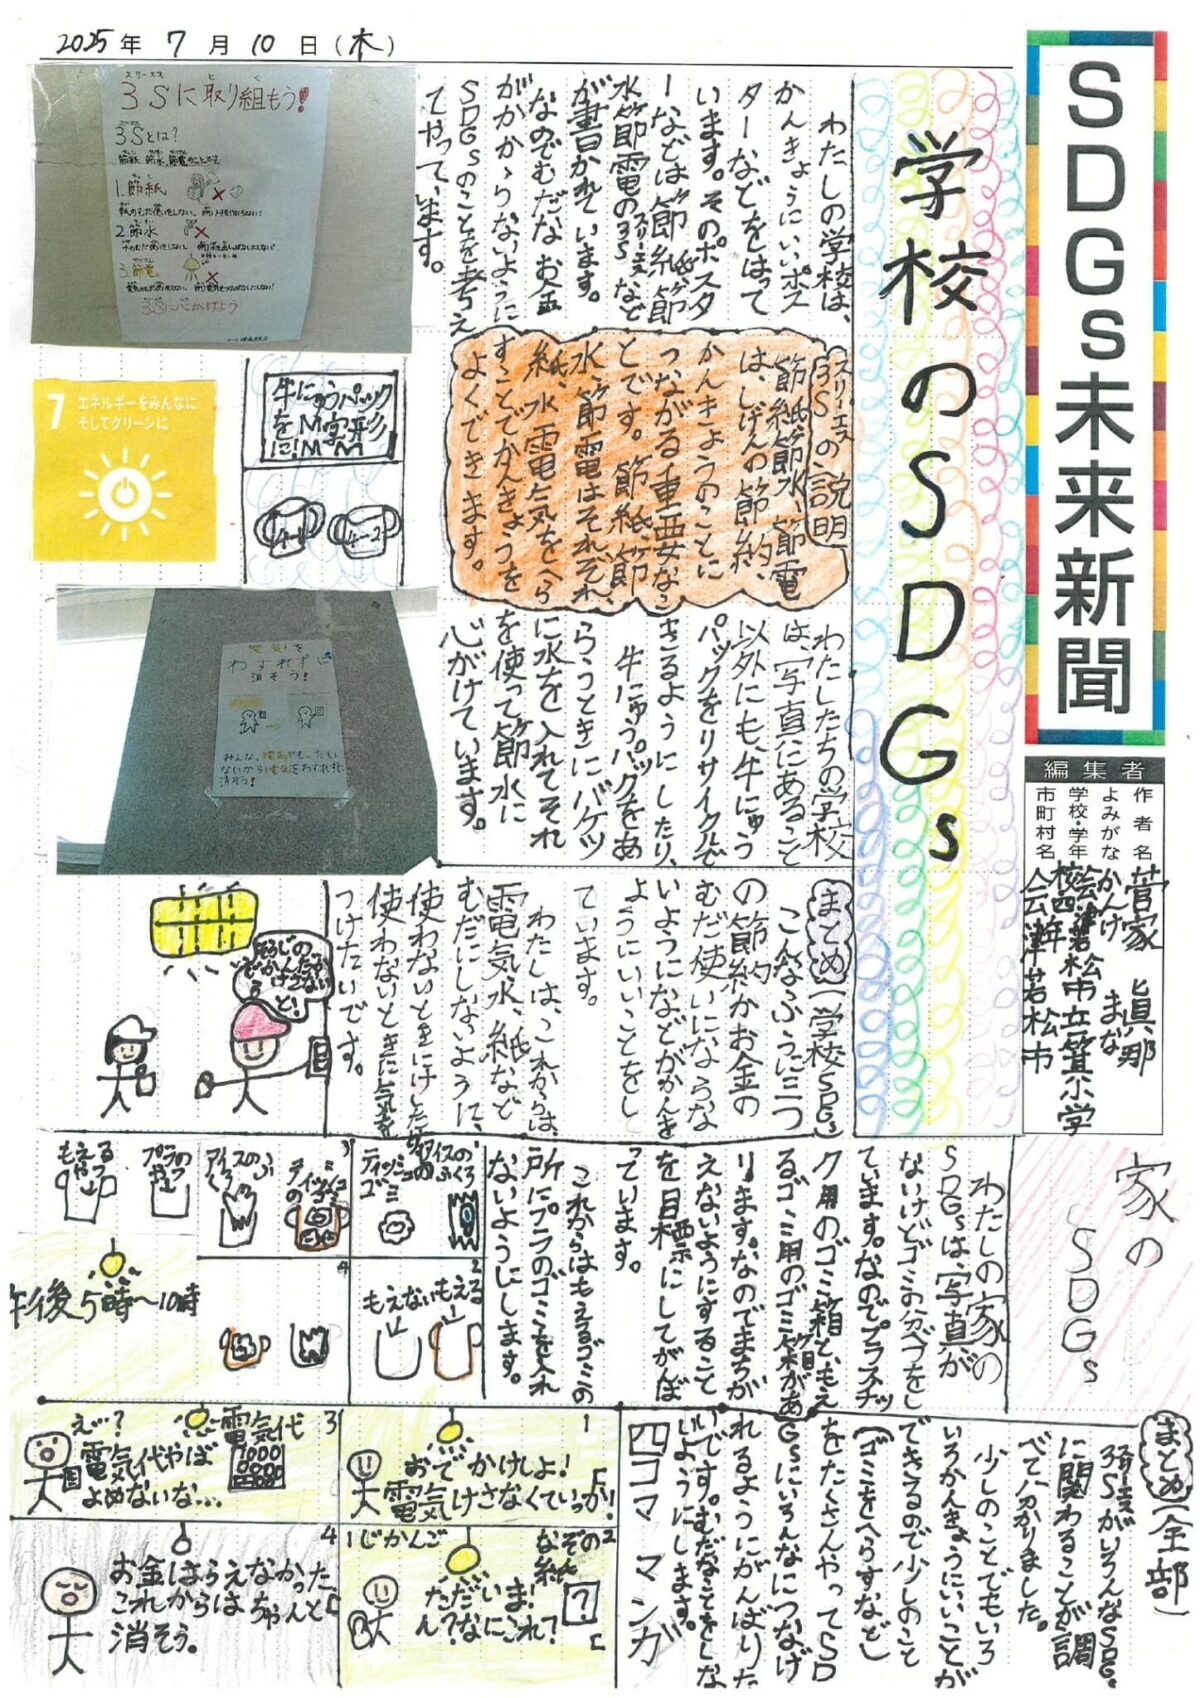 2025年 7月10日(木)
SDGs未来新聞
編集者
作者名 菅家 眞那
よみがな かんけ まな
学校・学年 会津若松市立一箕小学
校四年
市町村名 会津若松市
学校のSDGs
わたしの学校は、
かんきょうにいいポス
ターなどをはって
います。そのポスタ
ーなどは節紙節
水節電の3Sなど
が書かれています。
なのでむだなお金
がかからないように
SDGsのことを考え
てやっています。
スリーエス
3Sに取り組もう!
3Sとは?
節紙、節水、節電のことです。
1.節紙
2.節水
3.節電
3Sに心がけよう
スリーエス
3Sの説明
節紙節水、節電
は、しげんの節約、
かんきょうのことに
つながる重要なこ
とです。節紙、節
水、節電はそれぞれ
紙、水、電気をへら
すことでかんきょうを
よくできます。
7 エネルギーをみんなに
そしてクリーンに
牛にゅうパック
をM字形
に!M M
4-1
4-2
わたしたちの学校
は、写真にあること
以外にも、牛にゅう
パックをリサイクルで
きるようにしたり、
牛にゅうパックをあ
らうときにバケツ
に水を入れてそれ
を使って節水に
心がけています。
電気を
わすれず
消そう!
みんな、電気がもったい
ないから電気をわすれずに
消そう!
まとめ(学校SDGs)
こんなふうに三つ
の節約がお金の
むだ使いにならな
いようになどがかんきょ
ようにいいことをし
ています。
わたしは、これからは、
電気、水、紙など
むだにしないように、
使わないときにけしたり
使わないときに気を
つけたいです。
家のSDGs
わたしの家の
SDGsは、写真が
ないけどゴミの分べつをし
ています。なのでプラスチッ
ク用のゴミ箱ともえ
るゴミ用のゴミ箱があ
ります。なのでまちが
えないようにすること
を目標にしてがんば
っています。
これからはもえるゴミの
所にプラのゴミを入れ
ないようにします。
もえる
やつ
プラの
やつ
アイスのふくろ
ティッシュ
ゴミ
もえない
もえる
午後5時〜10時
まとめ(全部)
3SがいろんなSDGs
に関わることが調
べて分かりました。
少しのことでもいろ
いろかんきょうにいいことが
できるので少しのこと
(ゴミをへらすなど)
をたくさんやってSD
Gsにいろんなにつなげ
れるようにがんばりた
いです。むだなことをしな
いようにします。
四コママンガ
1
おでかけしよ!
電気けさなくていっか!
2
1じかんご
ただいま!
ん?なにこれ?
なぞの
紙
?
3
え…?
電気代やば
よめないな…
電気代
4
お金はらえなかった、
これからはちゃんと
消そう。